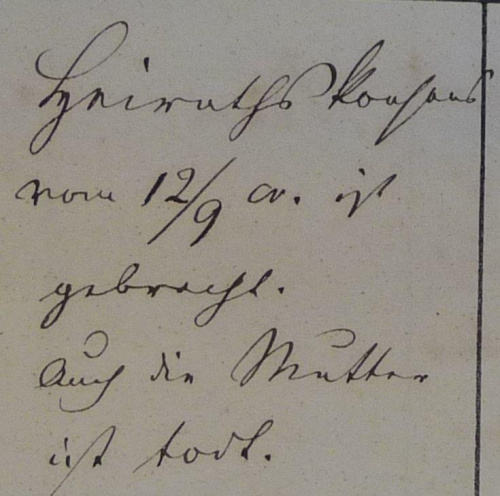 Heirathskonsens
vom 12/9 cr. ist
gebracht.
Auch die Mutter
ist todt.